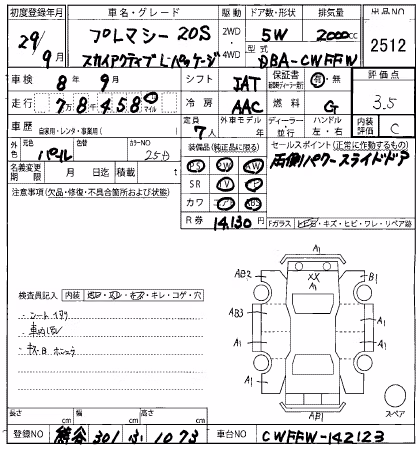 初度登録年月 車名・グレード 駆動 ドア数・形状 排気量 出品NO
29年 9月 プレマシー 20S 2WD ・ 4WD 5W 2000cc 2512
スカイアクティブ Lパッケージ 型式 DBA-CWFFW
車検 8年 9月 シフト IAT 保証書 有・無 評価点
走行 7万8458 マイル 冷房 AAC 燃料 G 3.5
車歴 自家用・レンタ・事業用( ) 定員 7人 外車モデル 年 ディーラー・並行 ハンドル 左・右 内装評価 C
外色 元色 パール 色替 カラーNO 25D 装備品(純正品に限る) セールスポイント(正常に作動するもの)
名義変更期限 月 日迄 積載 t PS PW AW 両側パワースライドドア
注意事項(欠品・修復・不具合箇所および状態) SR TV
カワ ABS
R券 14,130円 Fガラス ヒビ・キズ・ヒビ・ワレ・リペア跡
A1
AB2 XX A1 B1
検査員記入 内装 キレ・コゲ・穴
・シートイタミ AB3 A1
・車内
・ キズ・凹 A1 A1 A1
AB1 スペア
長さ cm 幅 cm 高さ cm
登録NO 熊谷 301 ふ 1073 車台NO CWFFW-142123